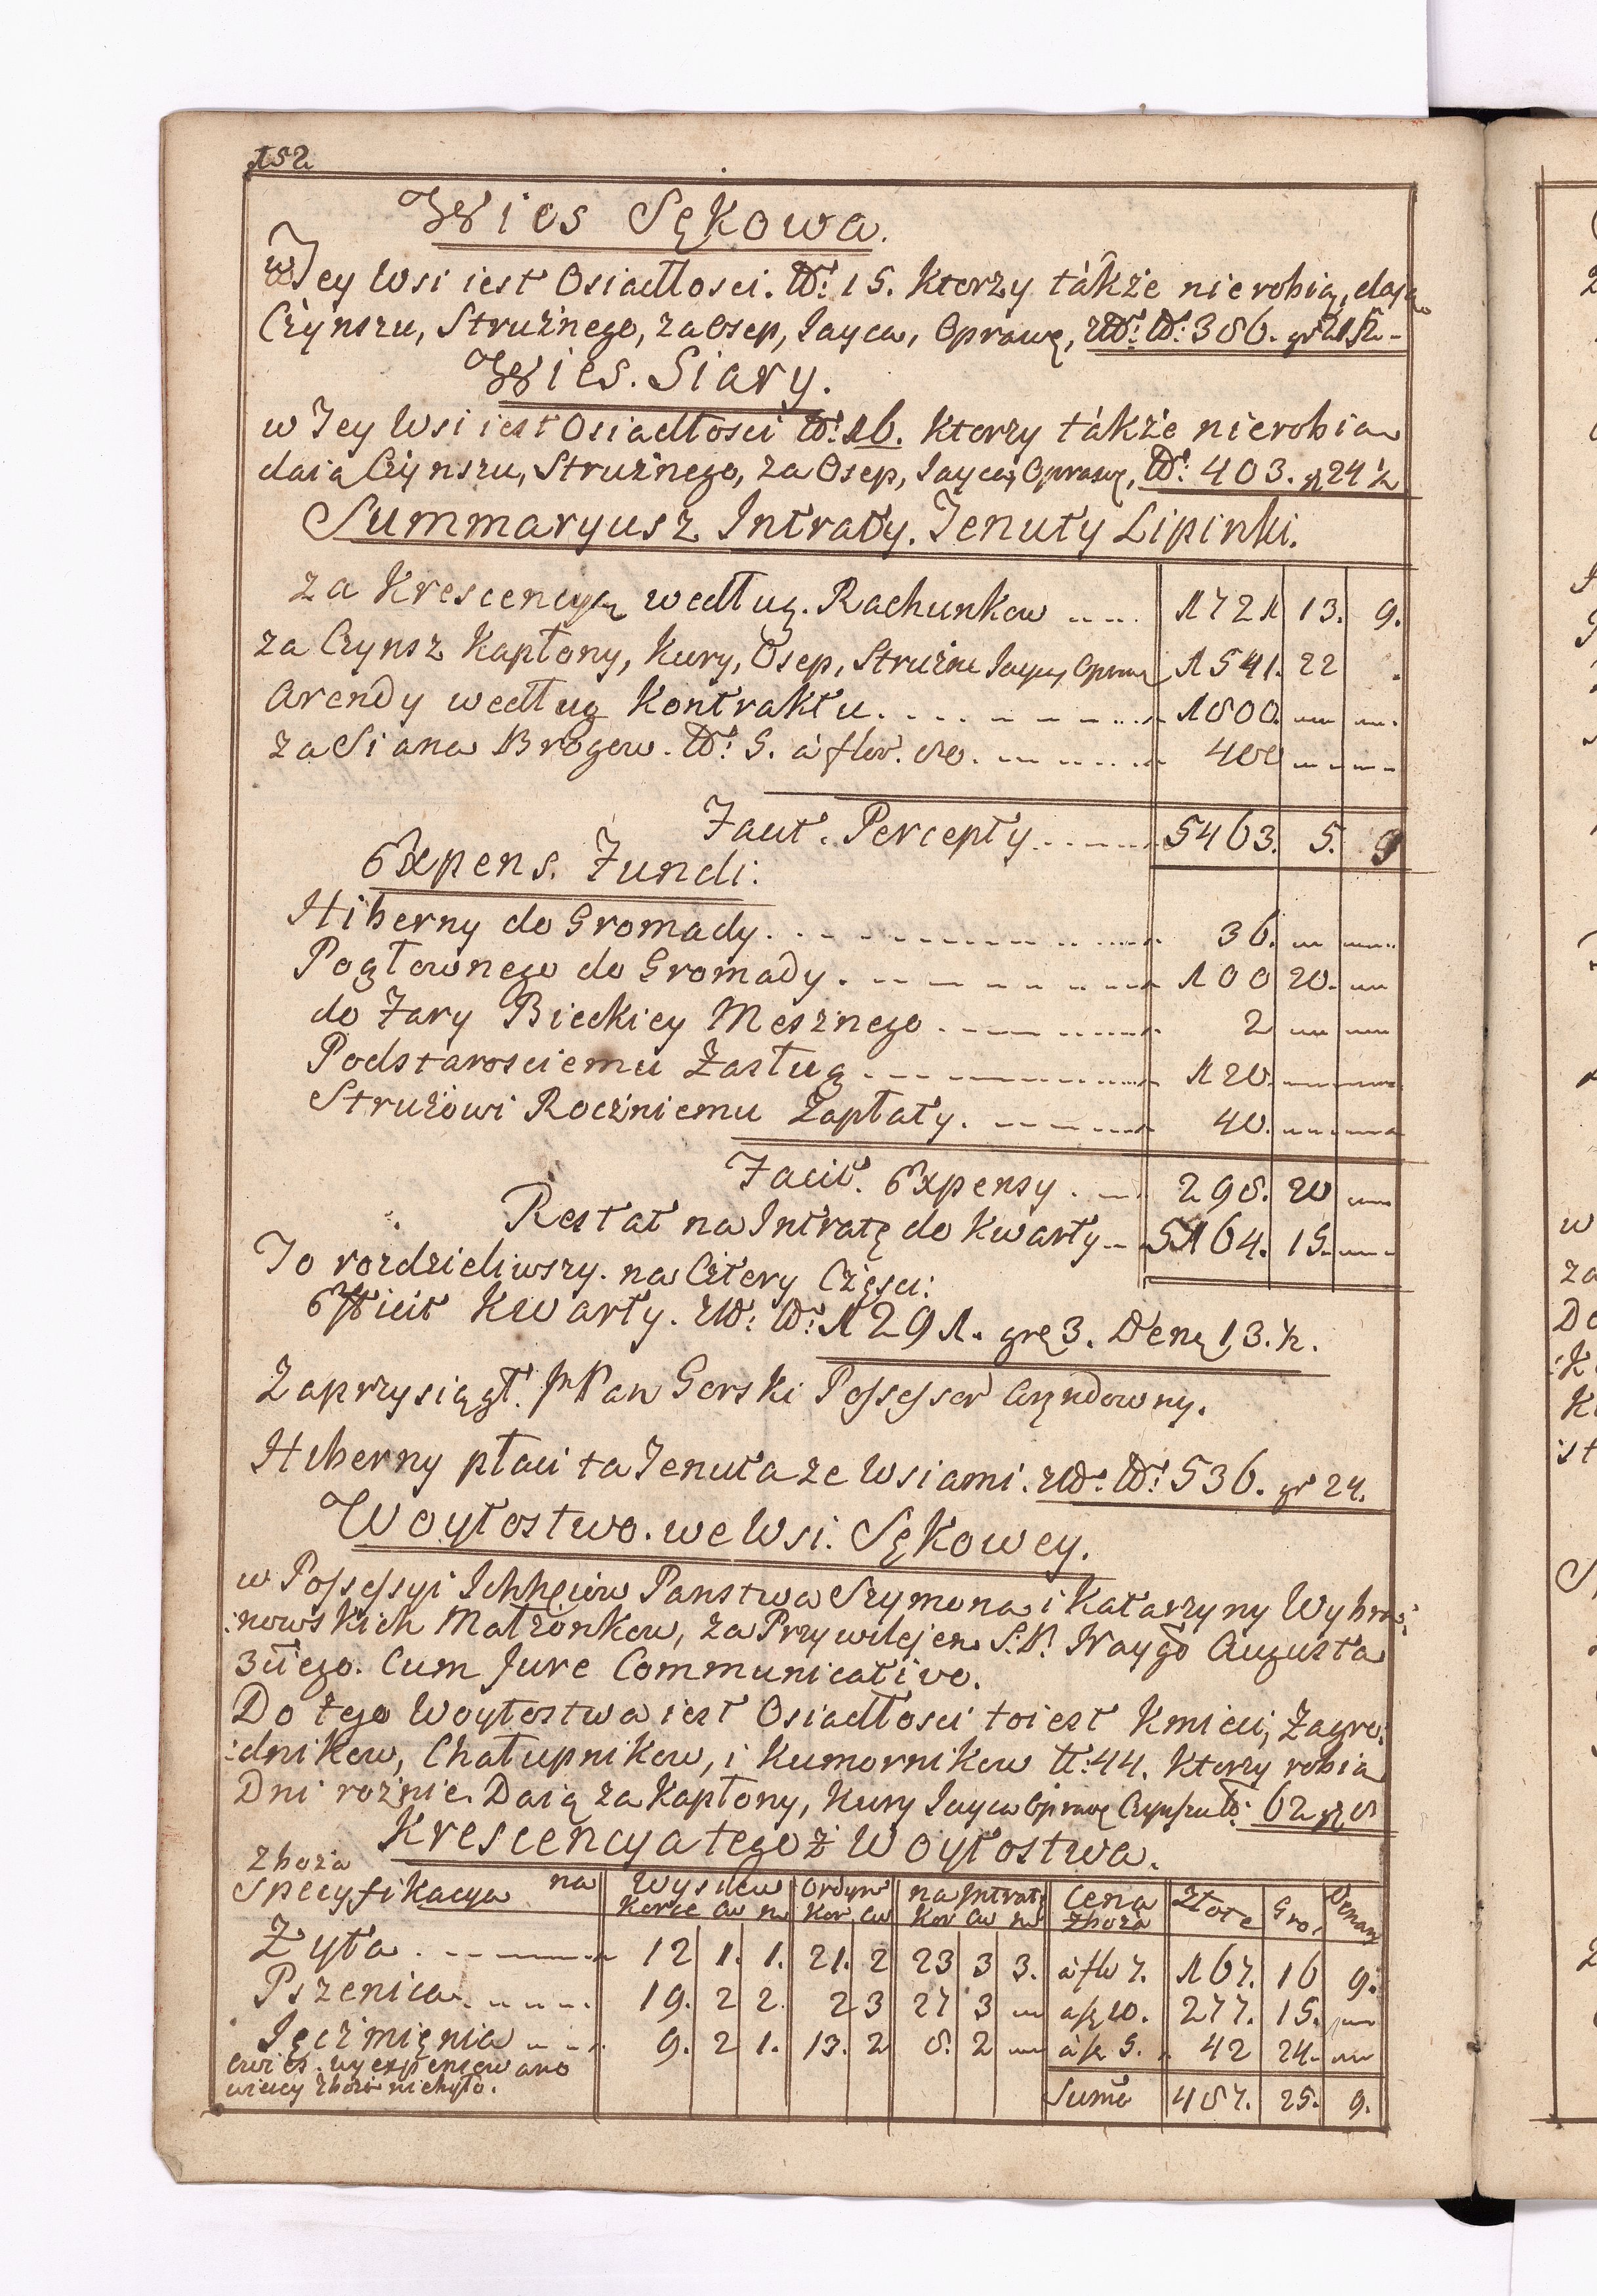 152
Wies Sękowa.
w Tey Wsi iest Osiadłosci. №: 15. Ktorzy tákże nierobią, daią
Czynszu, Strużnego, za Osep, Jayca, Oprawę, zł: №: 386. gr 21 ½
Wies. Siary.
w Tey Wsi iest Osiadłosci №: 16. Ktorzy tákże nierobia
daią Czynszu, Strużnego, za Osep, Jayca, Oprawę, №: 403. gr 24 ½
Summaryusz Intraty. Tenuty Lipinki.
za Krescencyą według. Rachunkow 1721 13. 9.
za Czynsz Kapłony, Kury, Osep, Strużne Jayca, Opraw 1541. 22
Arendy według Kontraktu. 1800.
za Siana Brogow. №: 5. á flor. 80. 400
Facit. Percepty 5463. 5. 9
Expens. Fundi:
Hiberny do Gromady. 36.
Pogłownego do Gromady. 100 20.
do Fary Bieckiey Mesznego 2
Podstarosciemu Zasług 120.
Strużowi Roczniemu Zapłaty. 40.
Facit. Expensy. 298. 20
Restat na Intratę do Kwarty 5164. 15.
To rozdzieliwszy. na Cztery Częsci:
Efficit Kwarty. zł: №: 1291. grę 3. Denę 13. ½.
Zaprzysiągł. JP Pan Gorski Possessor Arędowny.
Hiberny płaci ta Tenuta ze Wsiami. zł: №: 536. gr 24.
Woytostwo. we Wsi. Sękowey.
w Possessyi Ichhciow Panstwa Szymona i Katarzyny Wybra:
:nowskich Matżonkow, za Przywilejem S: P: Naygo Augusta
3ciego. Cum Jure Communicativo.
Do tego Woytostwa iest Osiadłosci toiest Kmieci, Zagro:
:dnikow, Chałupnikow, i Kumornikow №: 44. Ktorzy robia
Dni rożnie. Daią za Kapłony, Kury Jayca Oprawę Czynszu №: 62 gr 8
Krescencya tegoż Woytostwa.
Zboża Specyfikacya na Wysiew Korce Cw m Ordyn Kor Cw na Intratę Kor Cw m Cena Zboża Złote Gro: Denar
Zyta 12 1. 1. 21. 2 23 3 3. á flo 7. 167. 16 9.
Pszenica 19. 2 2. 2 3 27 3 á fl 10. 277. 15.
Jęczmięnia 9. 2 1. 13. 2 8. 2 á fl 5. 42 24.
Owies. wyexpensowano
wiecy Zboża niebyło. Suma 487. 25. 9.